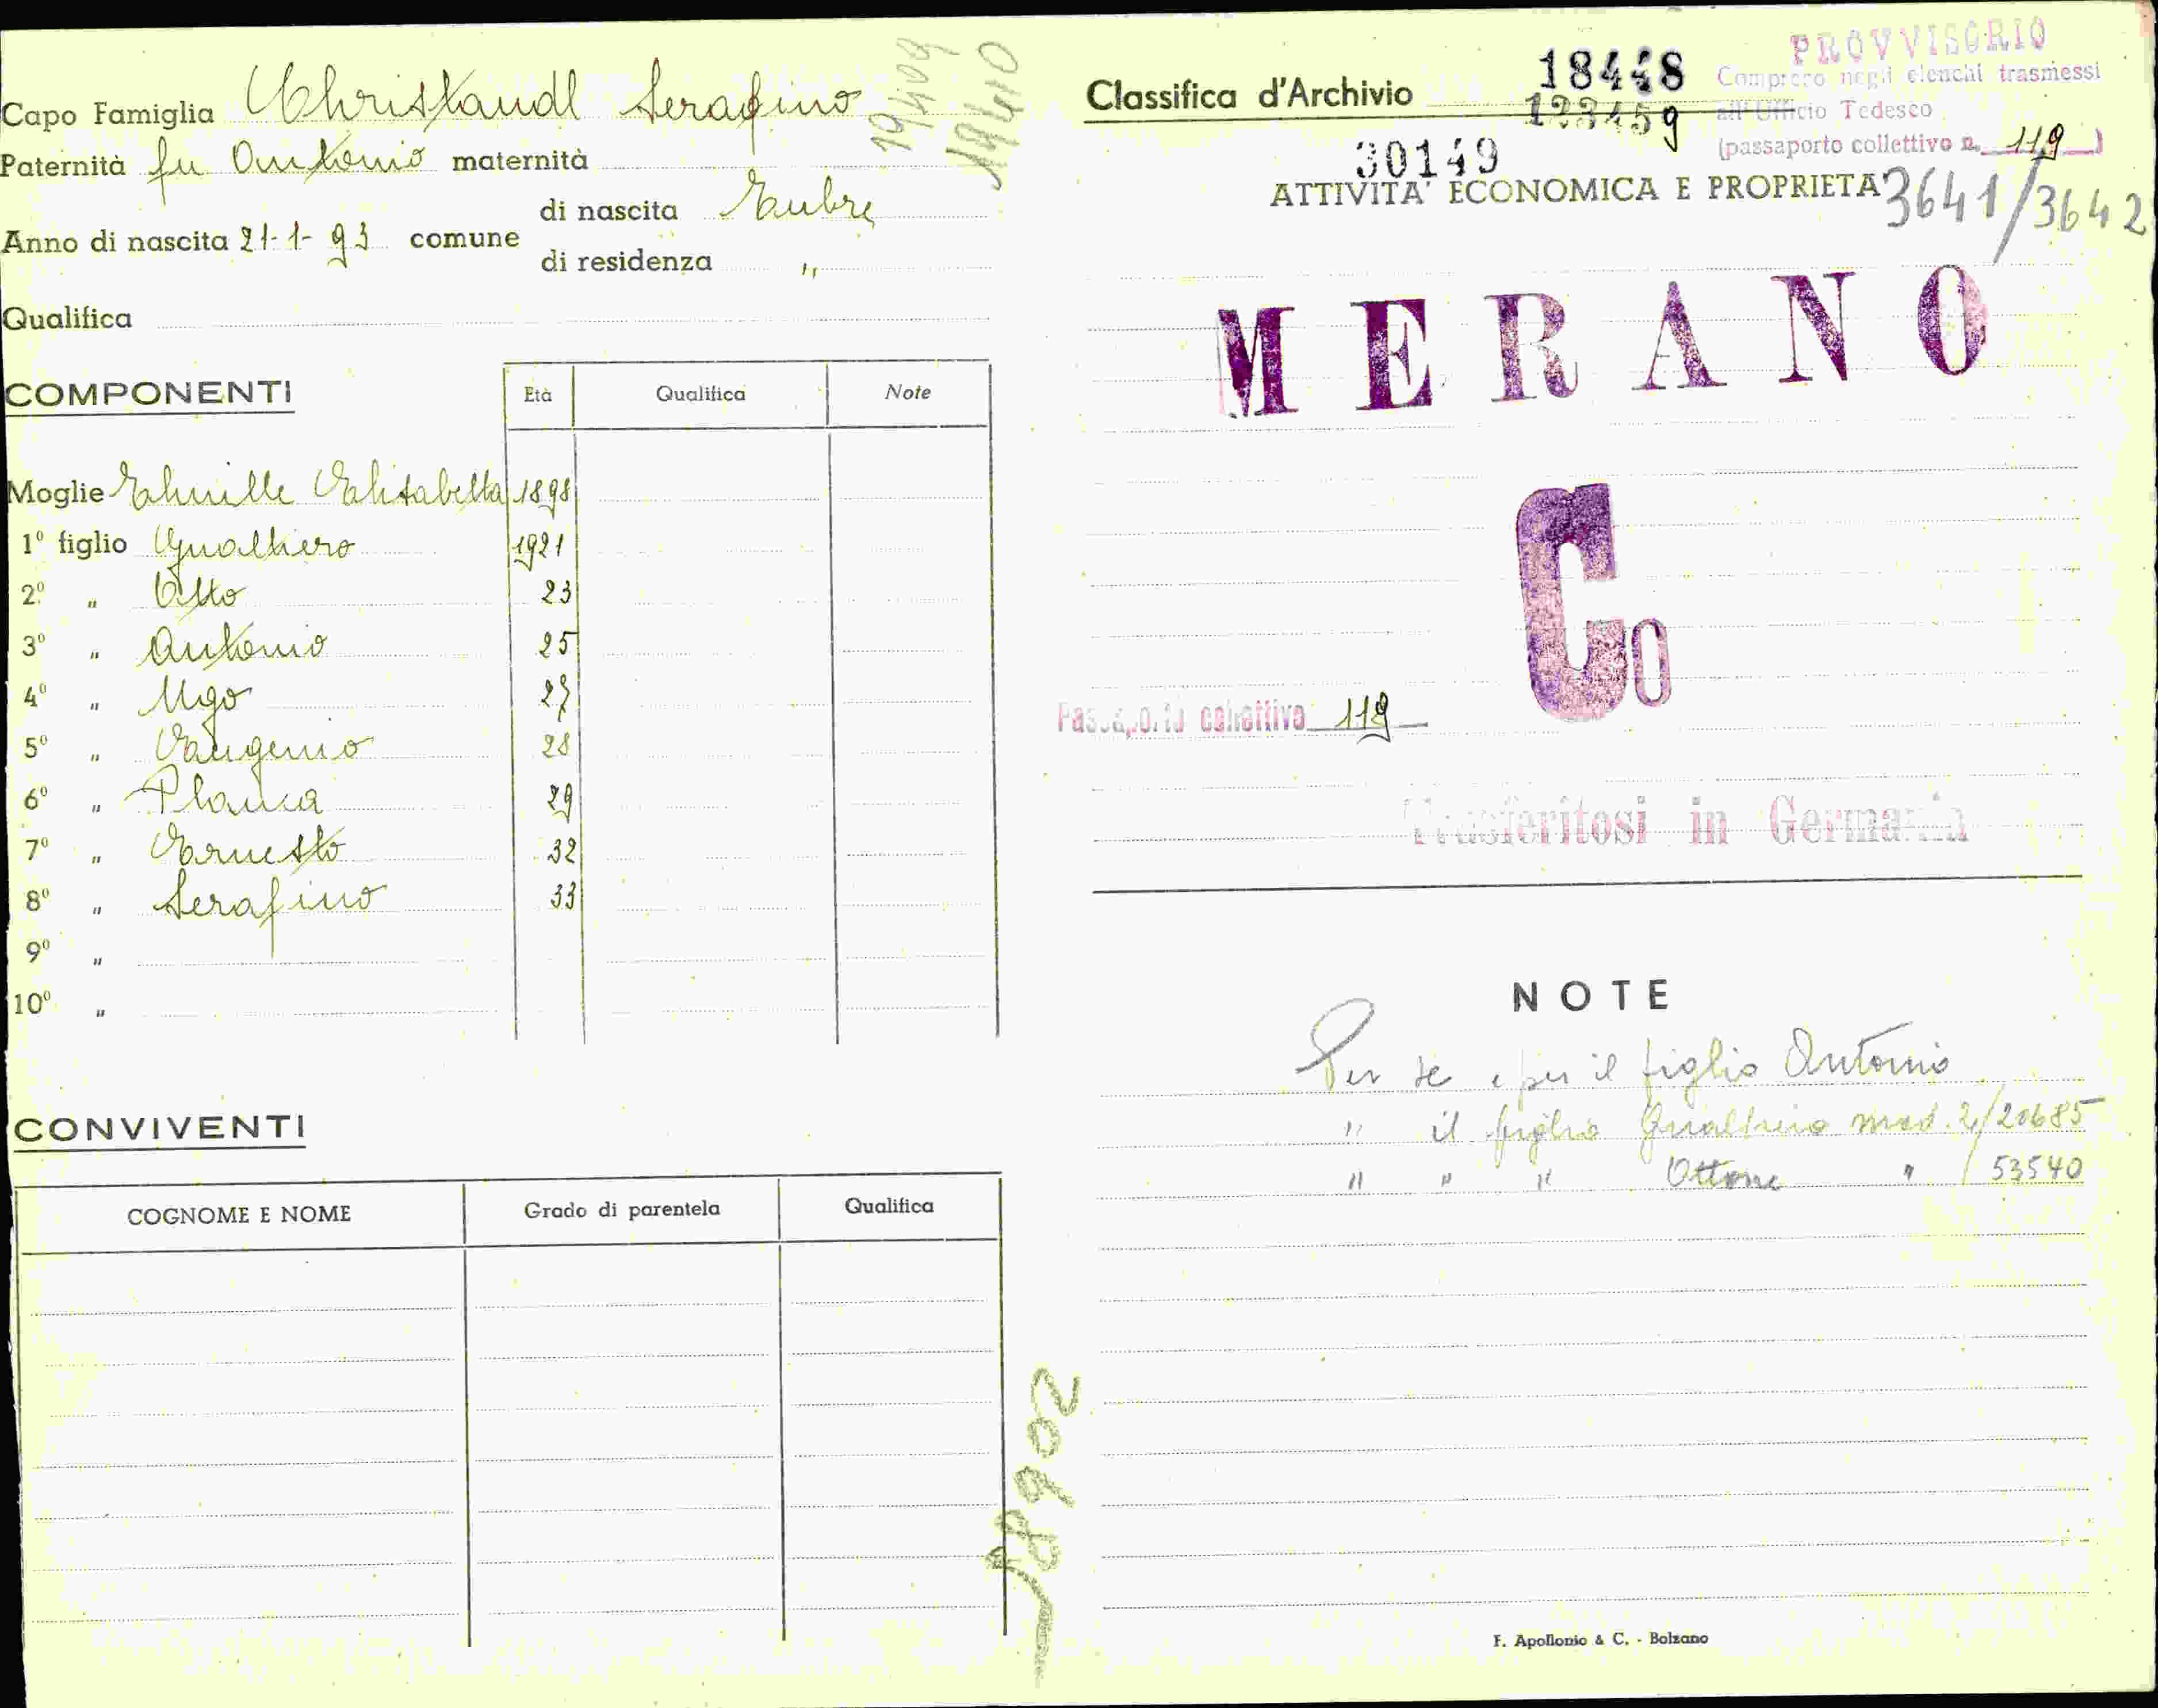 Capo Famiglia Christandl Serafino
Paternità fu Antonio maternità
di nascita Tubre
Anno di nascita 21-1-93 comune
di residenza "
Qualifica
19409
19410
COMPONENTI
Età Qualifica Note
Moglie Elisabetta 1898
1º figlio Gualtiero 1921
2º " Otto 23
3º " Antonio 25
4º " Ugo 27
5º " Eugenio 28
6º " 29
7º " Ernesto 32
8º " Serafino 33
9º "
10º "
CONVIVENTI
COGNOME E NOME Grado di parentela Qualifica
58902
Classifica d'Archivio 18448
123459
30149
PROVVISORIO
Compreso negli elenchi trasmessi
all'Ufficio Tedesco
(passaporto collettivo n. 119)
ATTIVITA' ECONOMICA E PROPRIETA'
3641/3642
MERANO
Co
Passaporto collettivo 119
Trasferitosi in Germania
NOTE
Per se e per il figlio Antonio
" il figlio Gualtiero mod. 2/20685
" " " Ottone " / 53540
F. Apollonio & C. - Bolzano